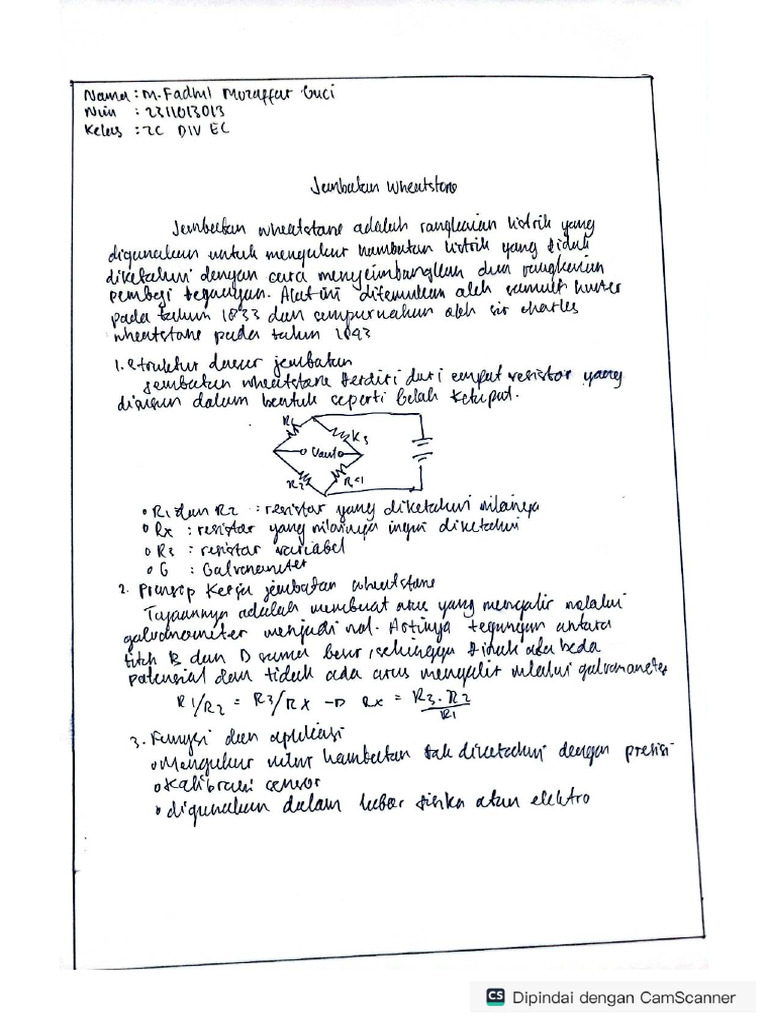 Nama : M. Fadhil Mozaffar Guci
Nim : 2311013013
Kelas : 2C DIV EC
Jembatan Wheatstone
Jembatan wheatstone adalah rangkaian listrik yang
digunakan untuk mengukur hambatan listrik yang tidak
diketahui dengan cara menyeimbangkan dua rangkaian
pembagi tegangan. Alat ini ditemukan oleh samuel hunter
pada tahun 1833 dan sempurnakan oleh sir charles
wheatstone pada tahun 1843
1. Struktur dasar jembatan
Jembatan wheatstone terdiri dari empat resistor yang
disusun dalam bentuk seperti belah ketupat.
R1
R3
Vout
R2
• R1 dan R2 : resistor yang diketahui nilainya
• Rx : resistor yang nilainya ingin diketahui
• R3 : resistor variabel
• G : Galvanometer
2. Prinsip kerja jembatan wheatstone
Tujuannya adalah membuat arus yang mengalir melalui
galvanometer menjadi nol. Artinya tegangan antara
titik B dan D sama besar, sehingga tidak ada beda
potensial dan tidak ada arus mengalir melalui galvanometer
R1/R2 = R3/RX → Rx = R3 . R2 / R1
3. Fungsi dan aplikasi
• Mengukur nilai hambatan tak diketahui dengan presisi
• Kalibrasi sensor
• digunakan dalam labor fisika atau elektro
CS Dipindai dengan CamScanner